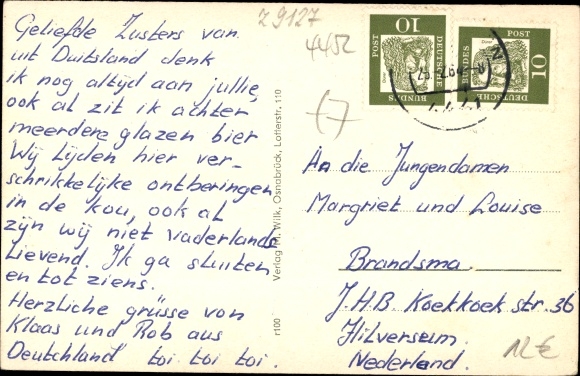 Z 9127
4452
Geliefde Zusters van
uit Duitsland denk
ik nog altijd aan jullie,
ook al zit ik achter
meerdere glazen bier
Wij Lijden hier ver-
schrikkelijke ontberingen
in de kou, ook al
zijn wij niet vaderlands
Lievend. Ik ga sluiten
en tot ziens.
Herzliche grüsse von
Klaas und Rob aus
Deutchland toi toi toi.
r100
Verlag H. Wilk, Osnabrück, Lotterstr. 110
10
POST
DEUTSCHE
BUNDES
POST
BUNDES
DEUTSCHE
10
An die Jungendamen
Margriet und Louise
Brandsma.
J.H.B. Koekkoek str. 36
Hilversum.
Nederland.
12€